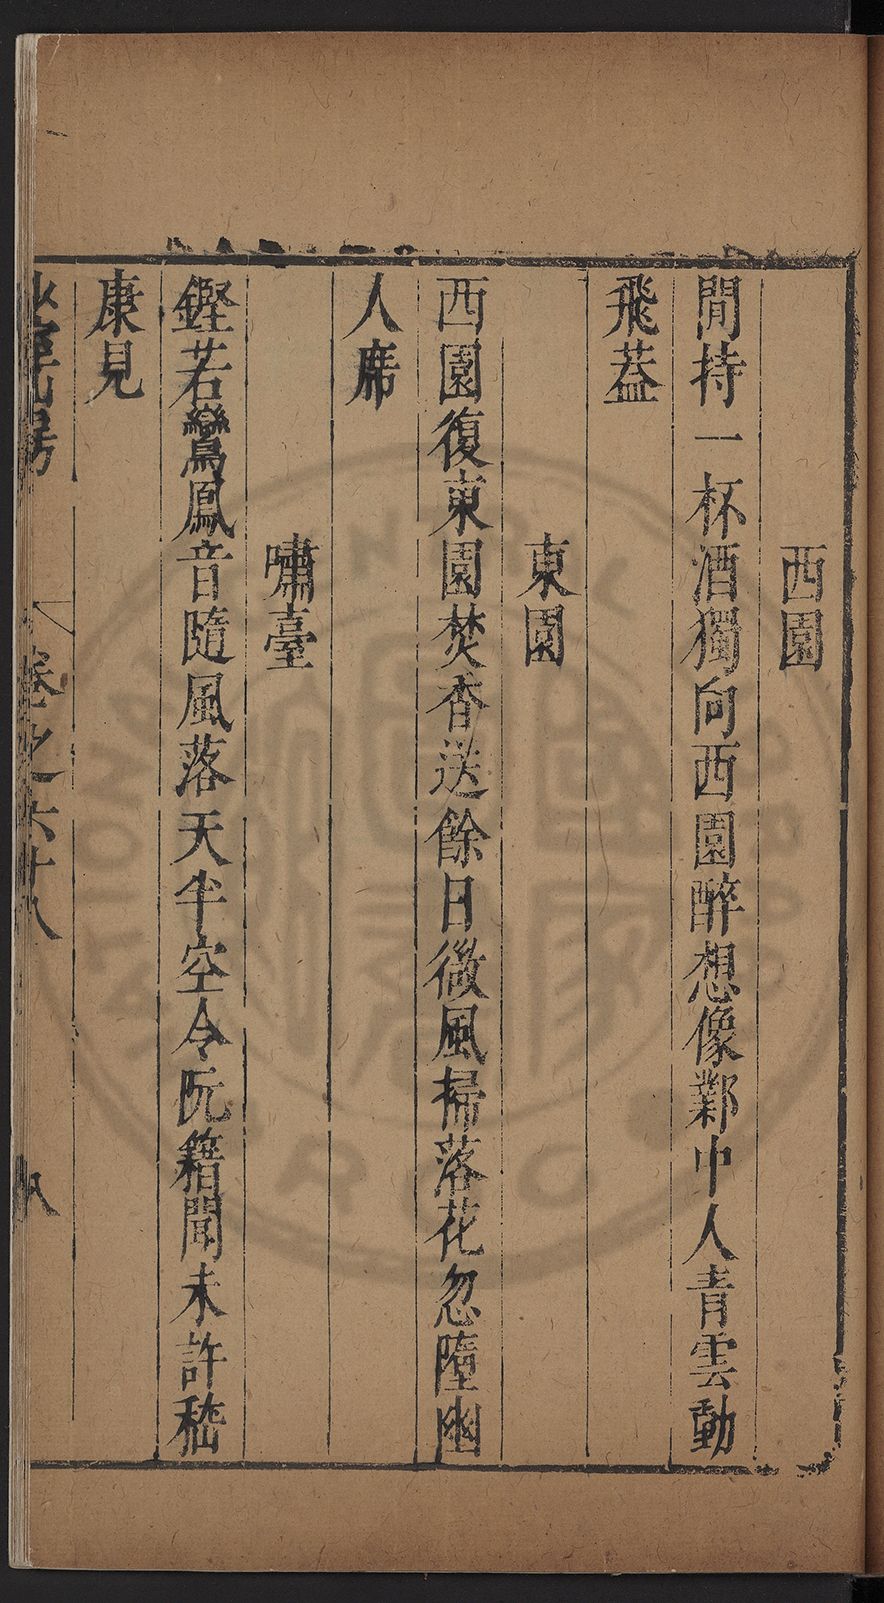 西園
閒持一杯酒獨向西園醉想像鄴中人青雲動
飛葢
東園
西園復東園焚香送餘日微風掃落花忽墮幽
人席
嘯臺
鏗若鸞鳳音隨風落天半空令阮籍聞未許嵇
康見
卷之六十八
八